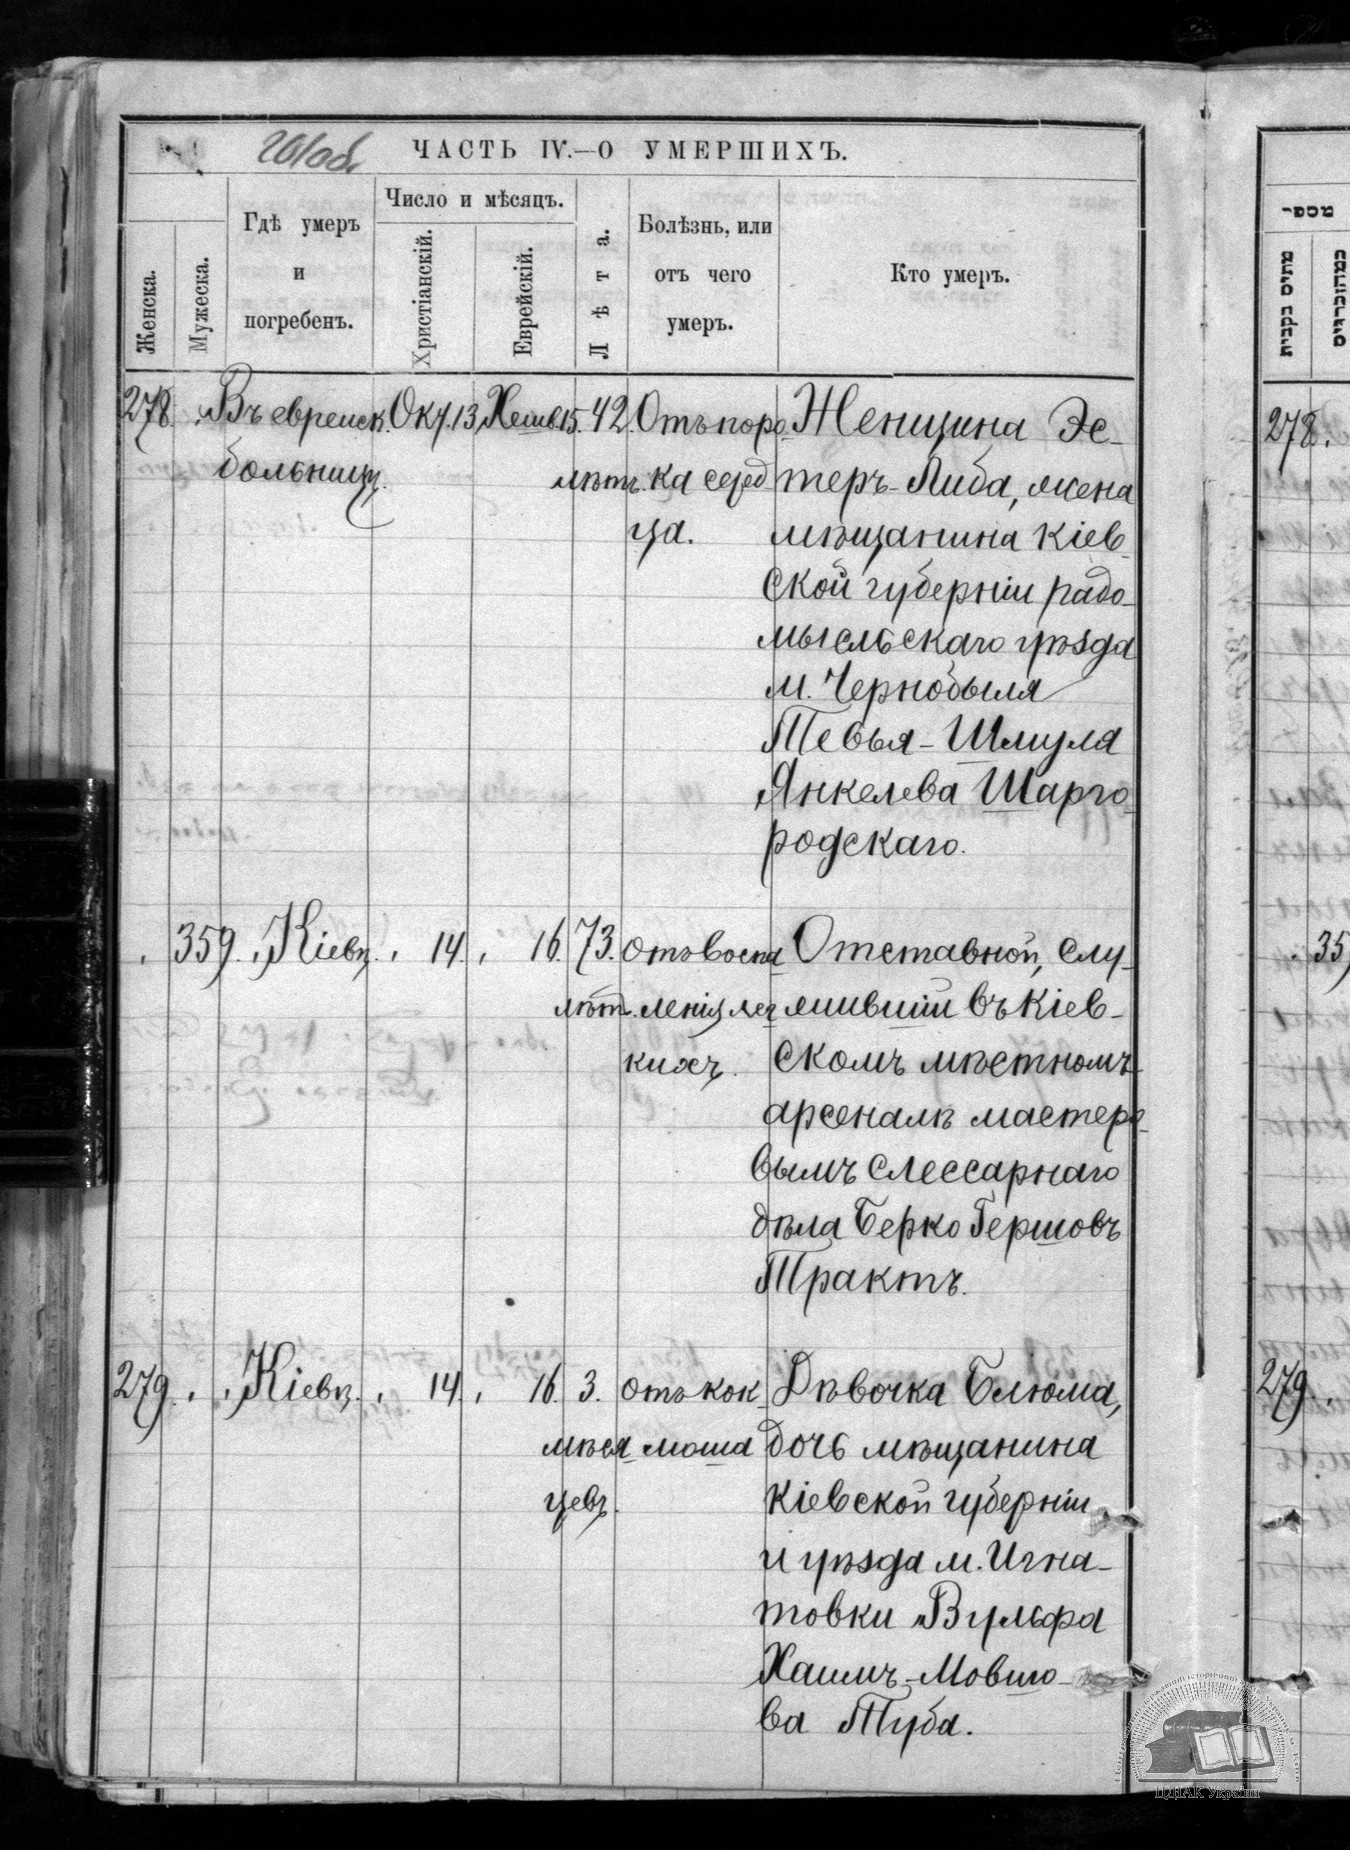 261об.
ЧАСТЬ IV.—О УМЕРШИХЪ.
Женска.
Мужеска.
Гдѣ умеръ
и
погребенъ.
Число и мѣсяцъ.
Христіанскій.
Еврейскій.
Лѣта.
Болѣзнь, или
отъ чего
умеръ.
Кто умеръ.
278. Въ еврейск. Окт. 13. Хешв. 15. 42. Отъ поро- Женщина Эс-
больниц. лѣтъ. ка серд- теръ-Либа, жена
ца. мѣщанина Кіев-
ской губерніи радо-
мысльскаго уѣзда
м. Чернобыля
Тевья-Шмуля
Янкелева Шарго-
родскаго.
359. Кіевъ. 14. 16. 73. отъ воспа- Отставной, слу-
лѣтъ. ленія лег- жившій въ Кіев-
кихъ. скомъ мѣстномъ
арсеналѣ мастеро-
вымъ слессарнаго
дѣла Берко Гершовъ
Трактъ.
279. Кіевъ. 14. 16. 3. отъ кок- Дѣвочка Блюма,
мѣся- люша дочь мѣщанина
цевъ. Кіевской губерніи
и уѣзда м. Игна-
товки Вульфа
Хаимъ-Мовшо-
ва Туба.
278.
35
279.
ЦДІАК України